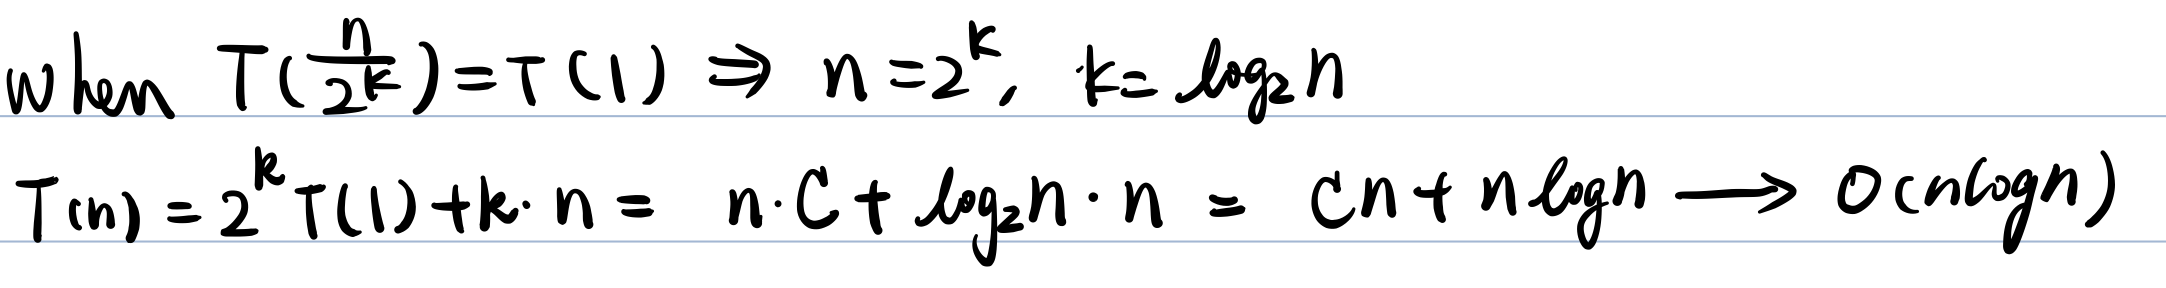 when T(n/2^k) = T(1) ⇒ n = 2^k, k = log₂ n
T(n) = 2^k T(1) + k · n = n · C + log₂ n · n = Cn + n log n ⟶ O(n log n)